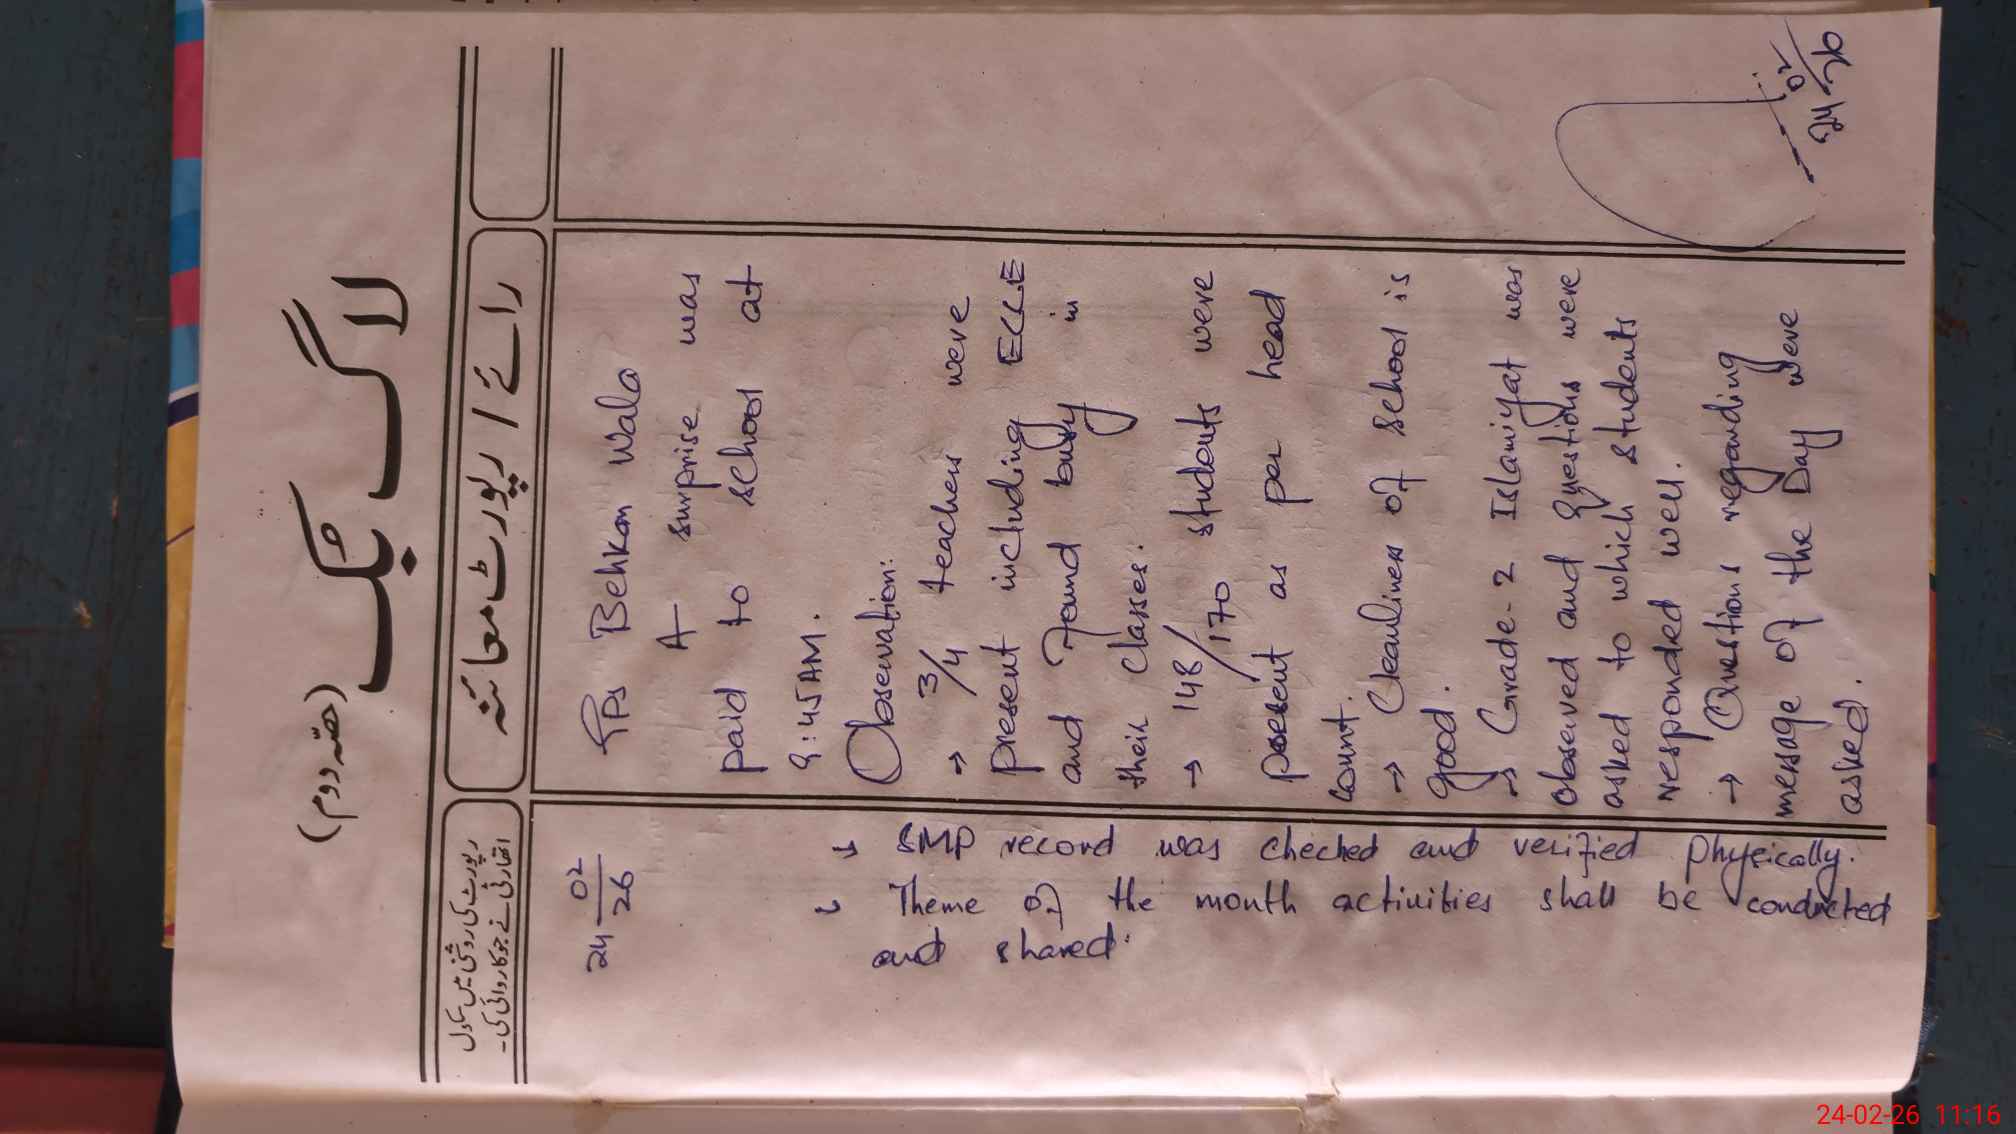 (حصّہ دوم)
لاگ بک
رپورٹ کی روشنی میں سکول
اتھارٹی نے جو کاروائی کی۔
رائے / رپورٹ معائنہ
24 02/26
GPS Behkan Wala
A surprise was
paid to school at
9:45AM.
Observation:
→ 3/4 teachers were
present including ECCE
and found busy in
their classes.
→ 148/170 students were
present as per head
count.
→ Cleanliness of school is
good.
→ Grade-2 Islamiyat was
observed and questions were
asked to which students
responded well.
→ Questions regarding
message of the Day were
asked.
→ SMP record was checked and verified physically.
→ Theme of the month activities shall be conducted
and shared.
24/02/26
24-02-26 11:16